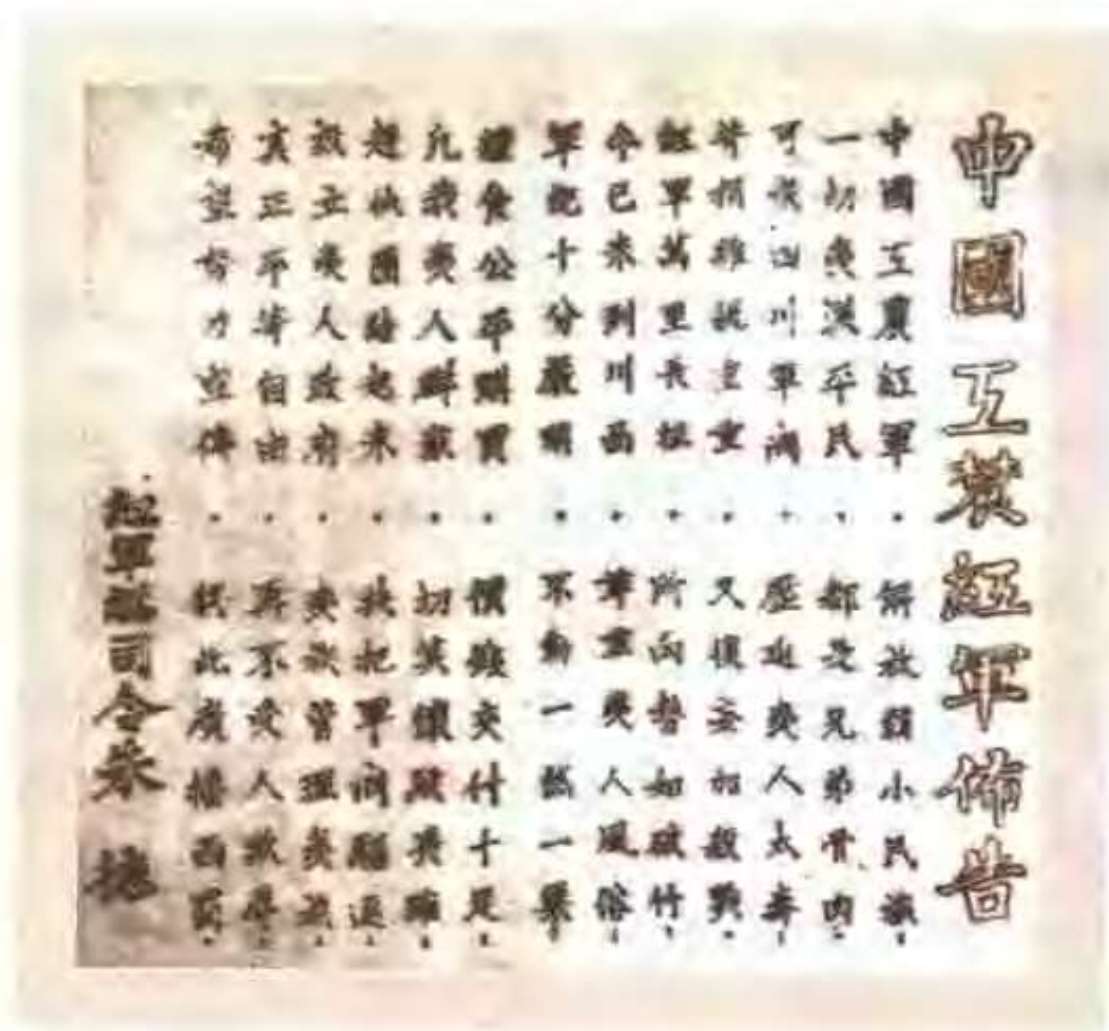 中國工农紅軍佈告
中國工農紅軍·解放弱小民族·
一切夷漢平民·都是兄弟骨肉·
可恨四川軍閥·壓迫夷人太毒·
苛捐雜稅重重·又復妄加殺戮·
紅軍萬里長征·所向勢如破竹·
今已來到川西·尊重夷人風俗·
軍紀十分嚴明·不動一絲一粟·
糧食公平購買·價錢交付十足·
凡我夷人群眾·切莫懷疑畏縮·
趕快團結起來·共把軍閥驅逐·
設立夷人政府·夷族管理夷族·
真正平等自由·再不受人欺辱·
希望努力宣傳·將此廣播西蜀·
紅軍總司令朱 德